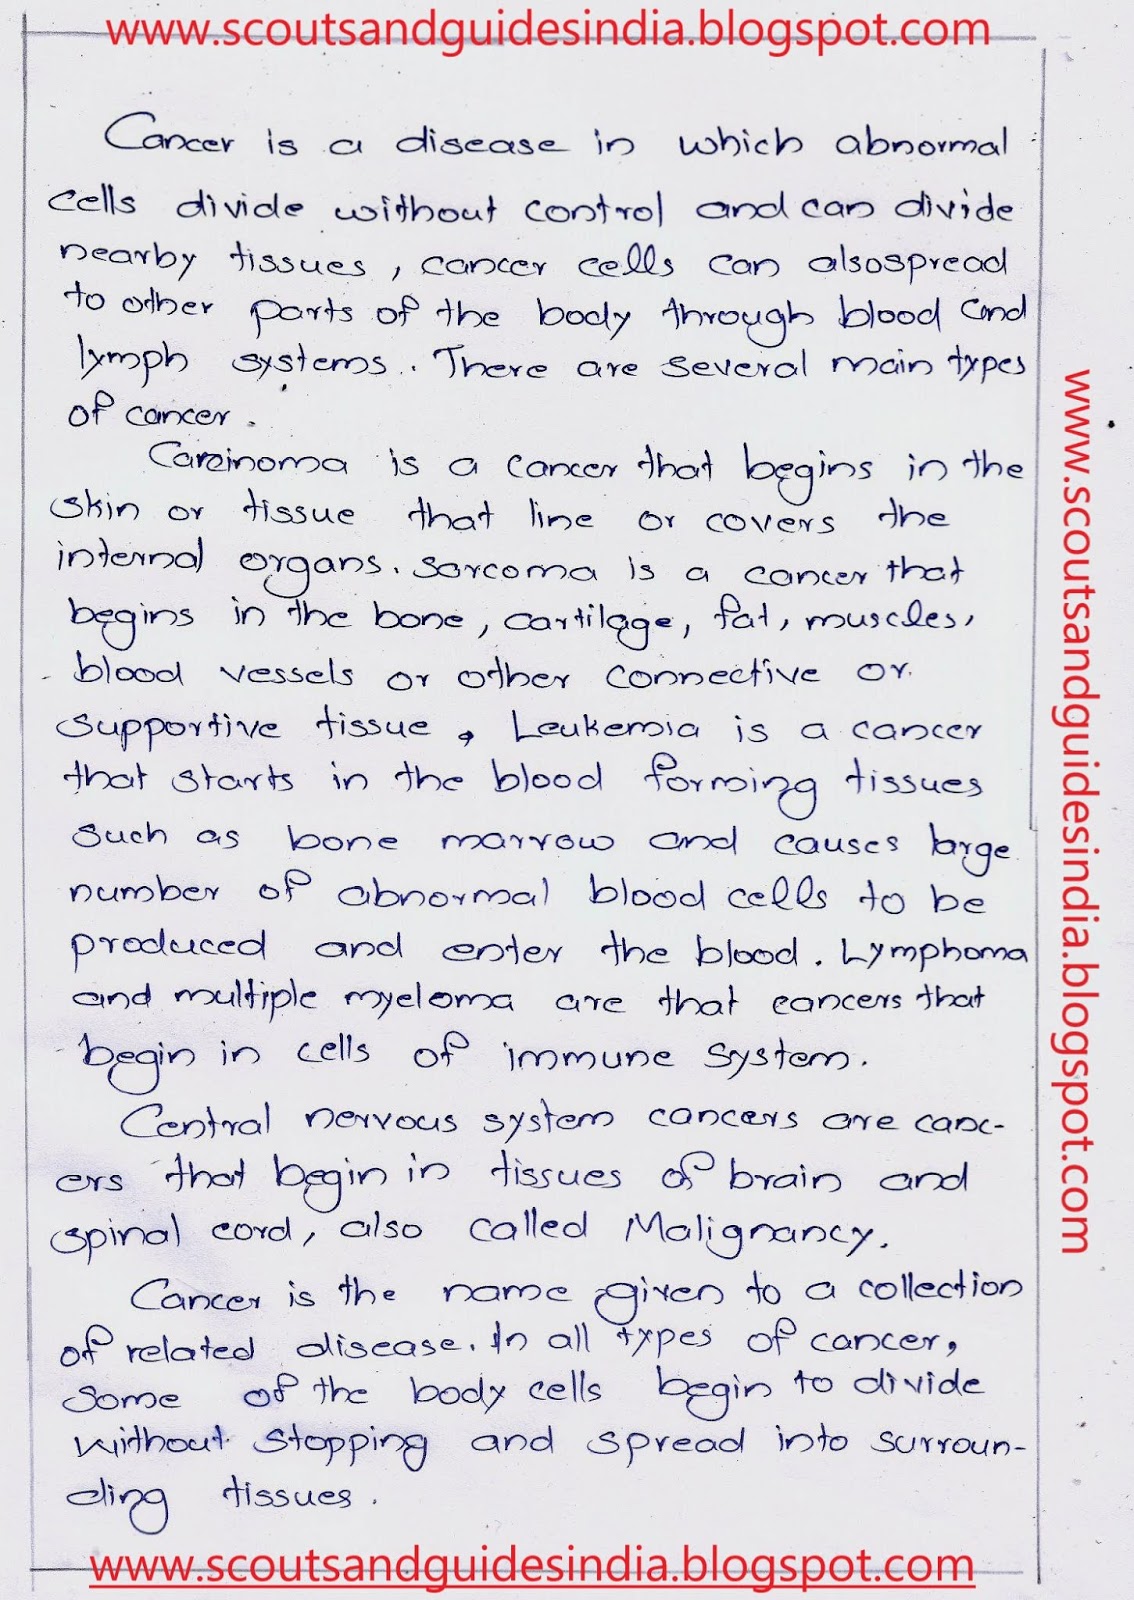 www.scoutsandguidesindia.blogspot.com
Cancer is a disease in which abnormal
cells divide without control and can divide
nearby tissues, cancer cells can alsospread
to other parts of the body through blood and
lymph systems. There are several main types
of cancer.
Carcinoma is a cancer that begins in the
skin or tissue that line or covers the
internal organs. Sarcoma is a cancer that
begins in the bone, cartilage, fat, muscles,
blood vessels or other connective or
supportive tissue, Leukemia is a cancer
that starts in the blood forming tissues
such as bone marrow and causes large
number of abnormal blood cells to be
produced and enter the blood. Lymphoma
and multiple myeloma are that cancers that
begin in cells of immune system.
Central nervous system cancers are canc-
ers that begin in tissues of brain and
spinal cord, also called Malignancy.
Cancer is the name given to a collection
of related disease. In all types of cancer,
some of the body cells begin to divide
without stopping and spread into surroun-
ding tissues.
www.scoutsandguidesindia.blogspot.com
www.scoutsandguidesindia.blogspot.com